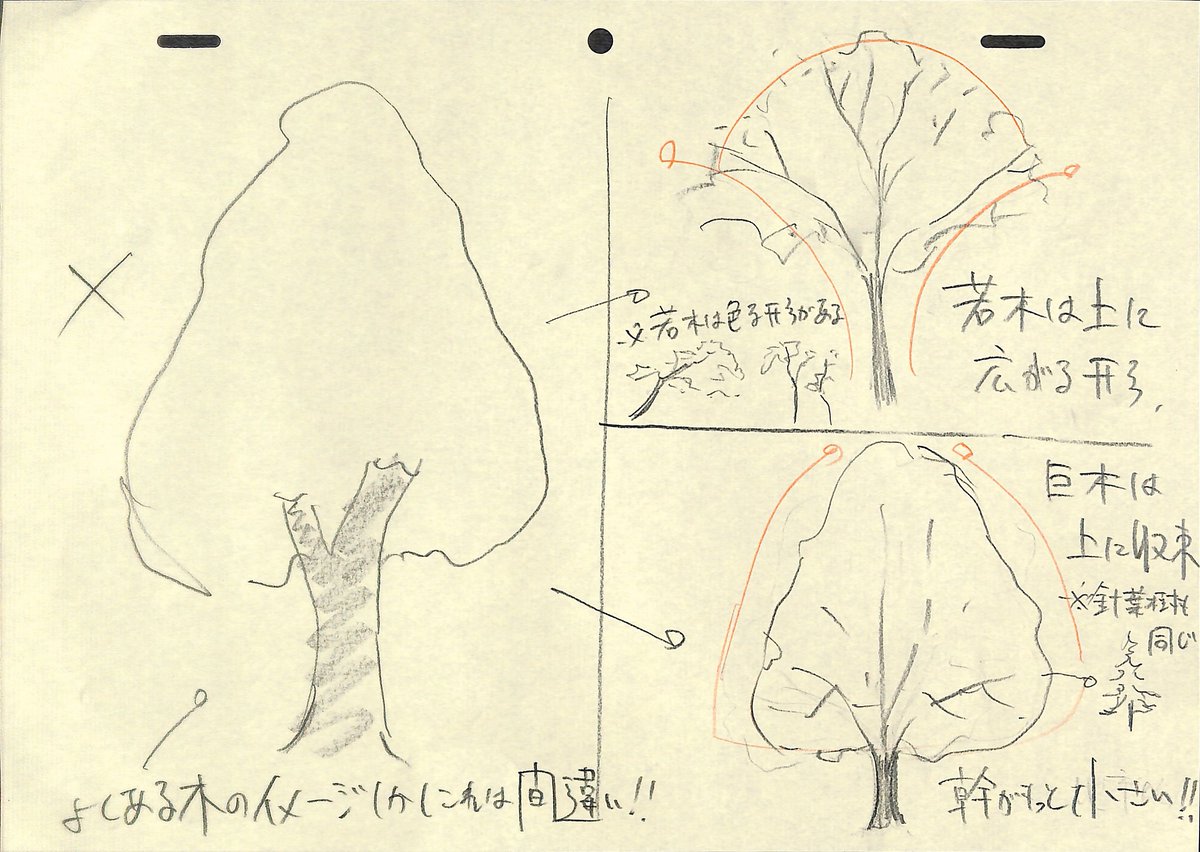 ×
よくある木のイメージしかしこれは間違い!!
若木は上に
広がる形、
※若木は色々形がある
巨木は
上に収束
※針葉樹も
同じ
幹がもっと小さい!!